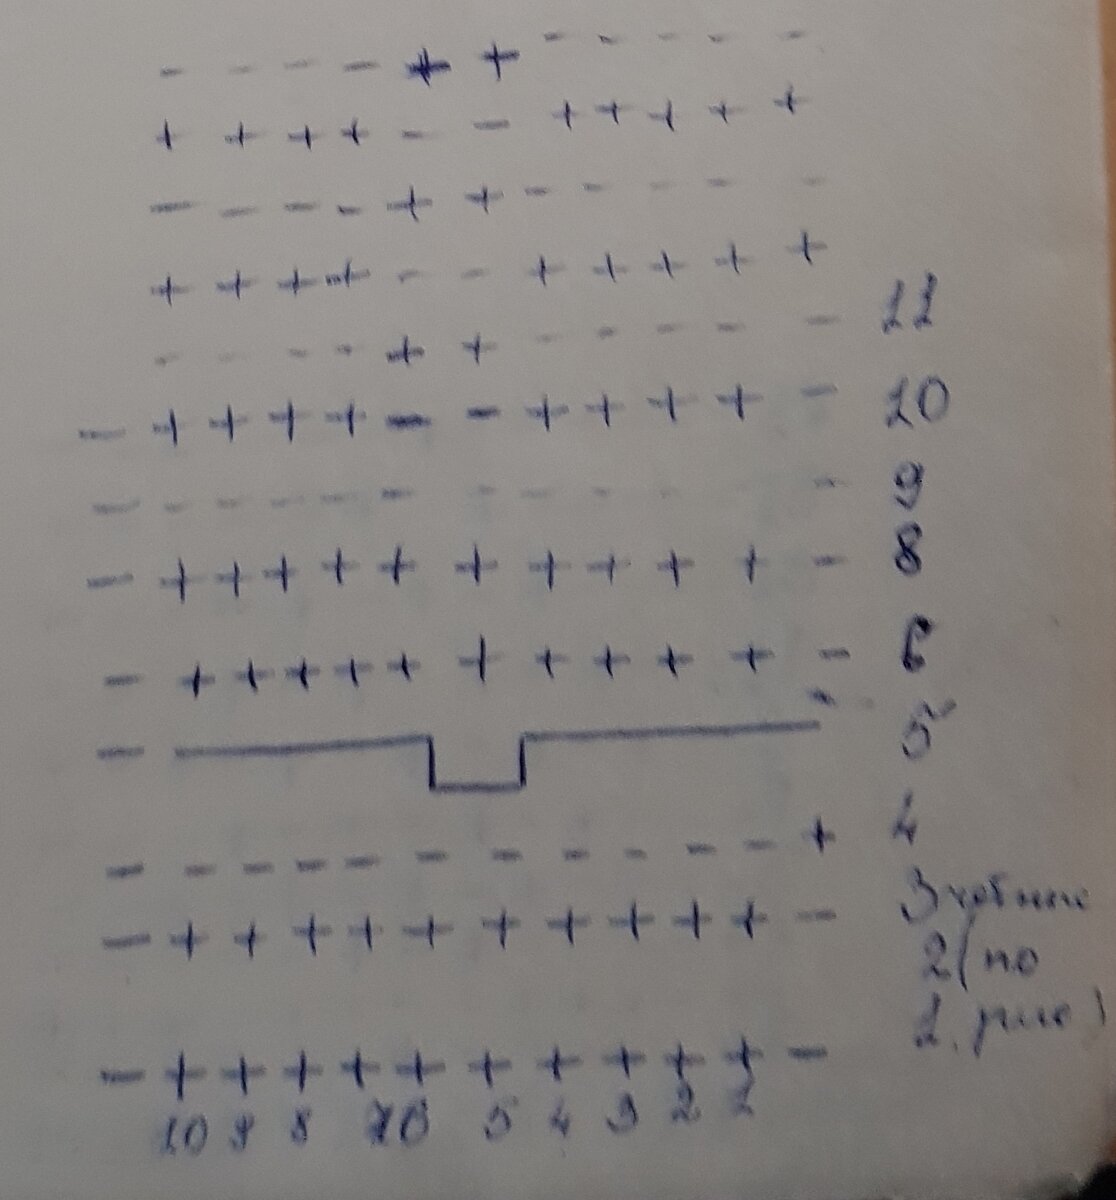 - - - - + + - - - - -
+ + + + - - + + + + +
- - - - + + - - - - -
+ + + + - - + + + + +
- - - - + + - - - - - 11
- + + + + - - + + + + - 10
- - - - - - - - - - - 9
- + + + + + + + + + + - 8
- + + + + + + + + + + - 6
- - 5
- - - - - - - - - - - + 4
- + + + + + + + + + + - 3 чётные
2 (по
1. рис)
- + + + + + + + + + + -
10 9 8 7 6 5 4 3 2 1